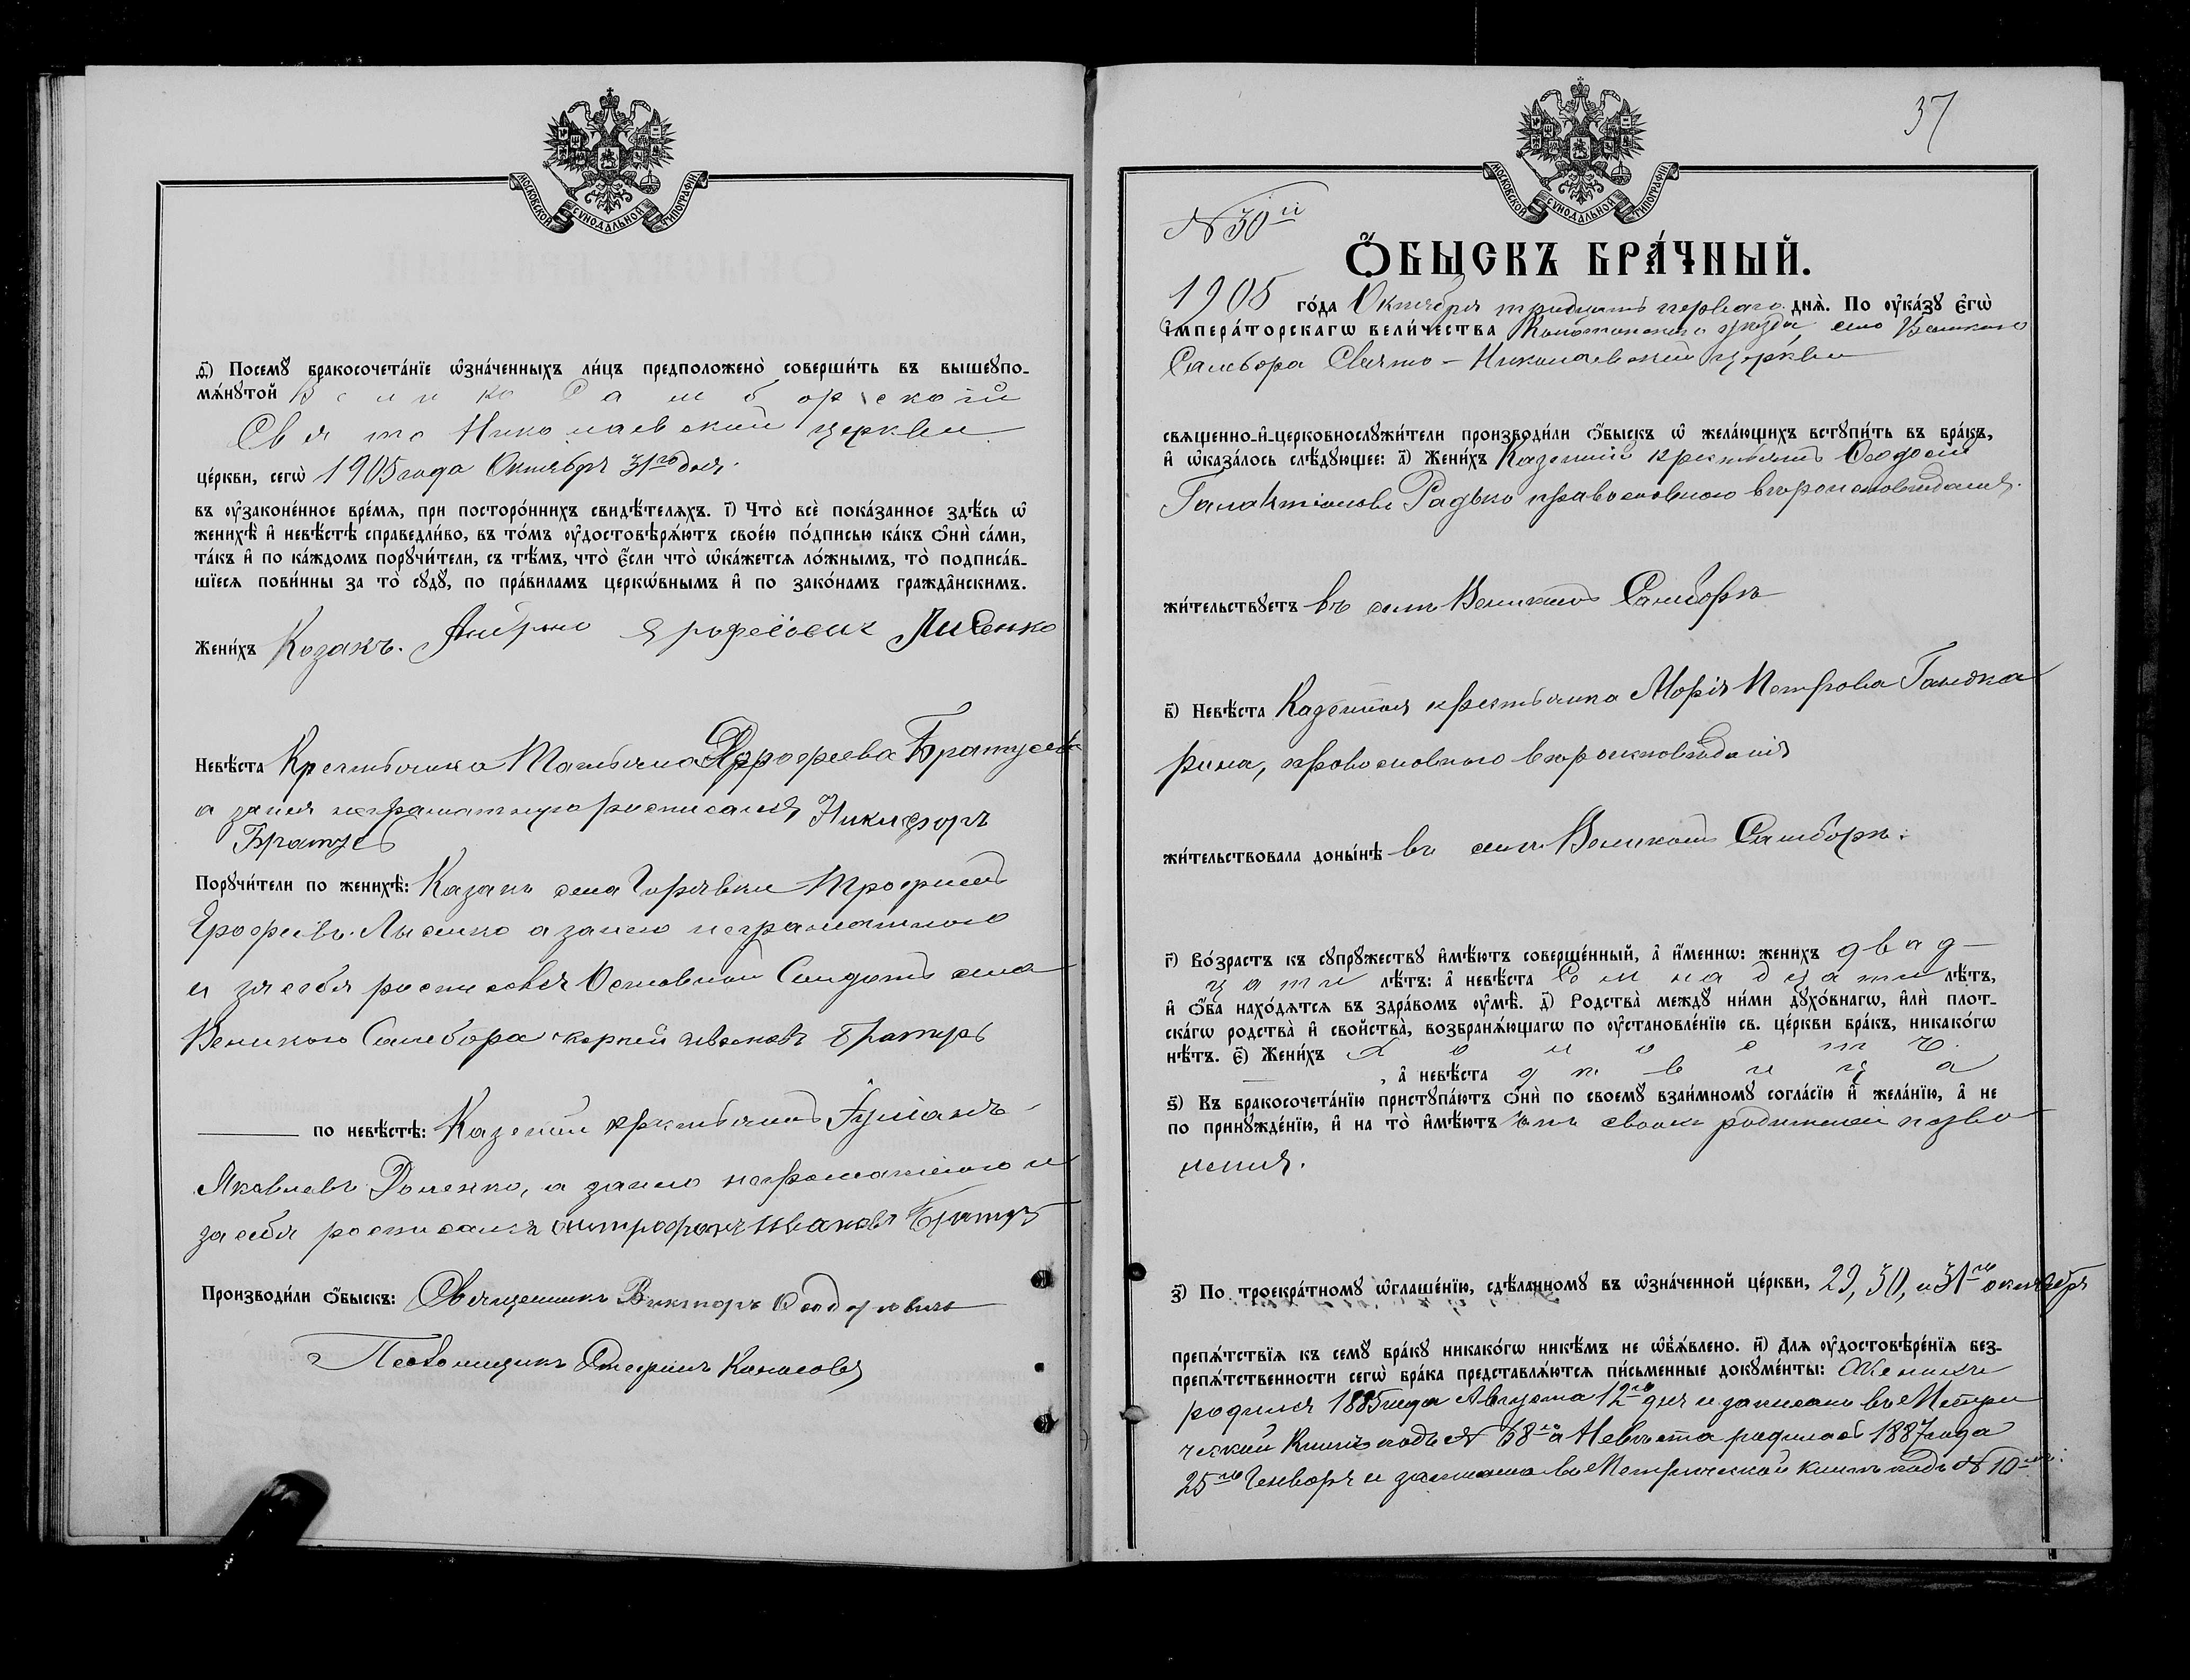 МОСКОВСКОЙ СѴНОДАЛЬНОЙ ТИПОГРАФІИ
Посемꙋ бракосочета́нїе ѡ҆зна́ченныхъ ли́цъ предположено̀ соверши́ть въ вышеꙋпо-
мѧ́нꙋтой Велико Самборской
Свято Николаевской церкви
це́ркви, сегѡ̀ 1905 года Октября 31го дня.
въ ᲂу҆зако́ненное вре́мѧ, при посторо́ннихъ свидѣ́телѧхъ. і҃) Что̀ всѐ пока́занное здѣ́сь ѡ҆
женихѣ̀ и҆ невѣ́стѣ справедли́во, въ то́мъ ᲂу҆достовѣрѧ́ютъ свое́ю по́дписью ка́къ ѻ҆нѝ са́ми,
та́къ и҆ по ка́ждомъ порꙋчи́тели, съ тѣ́мъ, что̀ є҆́сли что̀ ѡ҆ка́жетсѧ ло́жнымъ, то̀ подписа́в-
шїесѧ пови́нны за то̀ сꙋдꙋ̀, по пра́виламъ церкѡ́внымъ и҆ по зако́намъ гражда̂нскимъ.
Жени́хъ Козакъ. Андрей Лисенко
Невѣ́ста Крестьянка Татьяна Ерофеева Братусь
а за нея неграмотную росписался Никифоръ
Братусь
Порꙋчи́тели по женихѣ̀: Казакъ села Горѣвки Трофимъ
Ерофеевъ Лысенко а за него неграмотного
и за себя росписався Основной Солдатъ села
Великого Самбора Корней Ивановъ Братусь
по невѣ́стѣ: Казенный крестьянинъ
Яковлевъ Доменко, а за него неграмотного и
за себя росписался Митрофанъ Ивановъ Братусь
Производи́ли ѻ҆́быскъ: Священникъ Викторъ Ѳеодоровичъ
Псаломщикъ Стефанъ
37
МОСКОВСКОЙ СѴНОДАЛЬНОЙ ТИПОГРАФІИ
N 30й
Ѻ҆́БЫСКЪ БРА́ЧНЫЙ.
1905 го́да Октября тридцать первого днѧ̀. По ᲂу҆ка́зꙋ є҆гѡ̀
и҆мпера́торскагѡ вели́чества Конотопского уѣзда, села Великого
Самбора Свято-Николаевской церкви
свѧщенно-и҆-церковнослꙋжи́тели производи́ли ѻ҆́быскъ ѡ҆ жела́ющихъ встꙋпи́ть въ бра́къ,
и҆ ѡ҆каза́лось слѣ́дꙋющее: а҃) Жени́хъ Казенный крестьянинъ Ѳеодосій
Галактіоновъ Радько православного вѣроисповѣданія.
жи́тельствꙋетъ въ селѣ Великомъ Самборѣ
в҃) Невѣ́ста Казенная крестьянка Марія Петрова
православного вѣроисповѣданія
жи́тельствовала доны́нѣ въ селѣ Великомъ Самборѣ.
г҃) Во́зрастъ къ сꙋпрꙋ́жествꙋ и҆мѣ́ютъ соверше́нный, а҆ и҆́меннѡ: жени́хъ двад-
цати лѣ́тъ: а҆ невѣ́ста Семнадцати лѣ́тъ,
и҆ ѻ҆́ба нахо́дѧтсѧ въ здра́вомъ ᲂу҆мѣ̀. д҃) Родства̀ междꙋ̀ ни́ми дꙋхо́внагѡ, и҆лѝ плот-
ска́гѡ родства̀ и҆ свойства̀, возбранѧ́ющагѡ по ᲂу҆становле́нїю св. це́ркви бра́къ, никако́гѡ
нѣ́тъ. є҃) Жени́хъ Холостъ
, а҆ невѣ́ста дѣвица
ѕ҃) Къ бракосочета́нїю пристꙋпа́ютъ ѻ҆нѝ по своемꙋ̀ взаи́мномꙋ согла́сїю и҆ жела́нїю, а҆ не
по принꙋжде́нїю, и҆ на то̀ и҆мѣ́ютъ отъ своихъ родителей позво
ленія.
з҃) По троекра́тномꙋ ѡ҆глаше́нїю, сдѣ́ланномꙋ въ ѡ҆зна́ченной це́ркви, 29, 30, и 31го октября
препѧ́тствїѧ къ семꙋ̀ бра́кꙋ никако́гѡ никѣ́мъ не ѡ҆б̾ѧ́влено. и҃) Для ᲂу҆достовѣре́нїѧ без-
препѧ́тственности сегѡ̀ бра́ка представлѧ́ютсѧ пи́сьменные докꙋме́нты: Женихъ
родился 1885 года Августа 12го дня и записанъ въ Метри
ческой Книгѣ подъ N 68 а Невѣста родилась 1887 года
25го Генворя и записана въ Метрической книгѣ подъ N 10